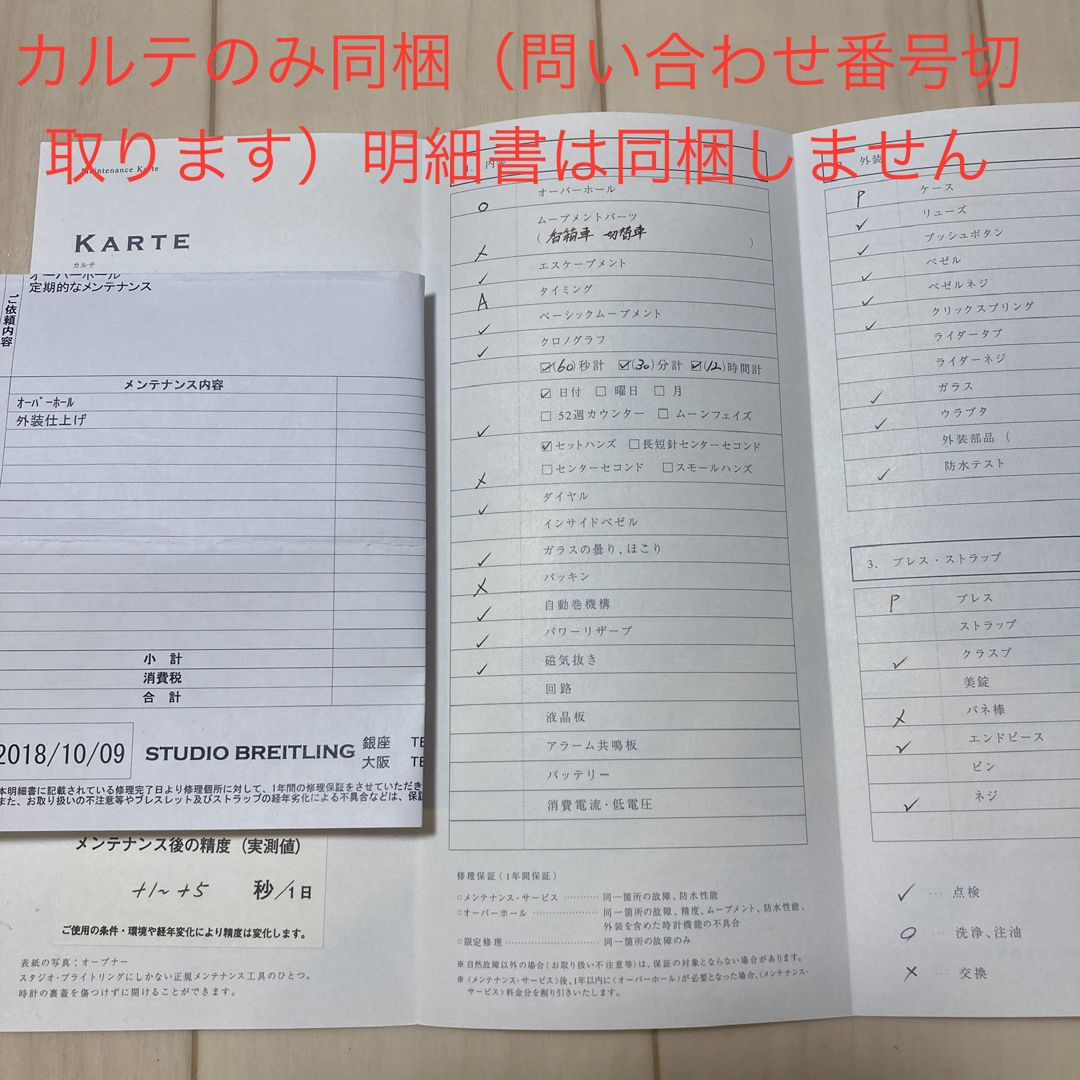 カルテのみ同梱（問い合わせ番号切
取ります）明細書は同梱しません
Maintenance Karte
KARTE
カルテ
オーバーホール
定期的なメンテナンス
ご依頼内容
メンテナンス内容
ｵｰﾊﾞｰﾎｰﾙ
外装仕上げ
小 計
消費税
合 計
2018/10/09 STUDIO BREITLING 銀座
大阪
本明細書に記載されている修理完了日より修理個所に対して、1年間の修理保証をさせていただき
また、お取り扱いの不注意等やブレスレット及びストラップの経年劣化による不具合などは、保証
メンテナンス後の精度（実測値）
+1〜+5 秒/1日
ご使用の条件・環境や経年変化により精度は変化します。
表紙の写真：オープナー
スタジオ・ブライトリングにしかない正規メンテナンス工具のひとつ。
時計の裏蓋を傷つけずに開けることができます。
内
O オーバーホール
ムーブメントパーツ
( 香箱車 切替車 )
✗
✓ エスケープメント
A タイミング
✓ ベーシックムーブメント
✓ クロノグラフ
☑(60)秒計 ☑(30)分計 ☑(12)時間計
☑ 日付 □ 曜日 □ 月
□ 52週カウンター □ ムーンフェイズ
✓
☑セットハンズ □長短針センターセコンド
□センターセコンド □スモールハンズ
✗
✓ ダイヤル
インサイドベゼル
✓ ガラスの曇り、ほこり
✗ パッキン
✓ 自動巻機構
✓ パワーリザーブ
✓ 磁気抜き
回路
液晶板
アラーム共鳴板
バッテリー
消費電流・低電圧
修理保証（1年間保証）
○メンテナンス・サービス ………… 同一箇所の故障、防水性能
○オーバーホール ………………… 同一箇所の故障、精度、ムーブメント、防水性能、
外装を含めた時計機能の不具合
○限定修理 ………………………… 同一箇所の故障のみ
※自然故障以外の場合（お取り扱い不注意等）は、保証の対象とならない場合があります。
※〈メンテナンス・サービス〉後、1年以内に〈オーバーホール〉が必要となった場合、〈メンテナンス・
サービス〉料金分を割り引きいたします。
外装
P ケース
✓ リューズ
✓ プッシュボタン
✓ ベゼル
✓ ベゼルネジ
✓ クリックスプリング
ライダータブ
ライダーネジ
✓ ガラス
✓ ウラブタ
外装部品（
✓ 防水テスト
3. ブレス・ストラップ
P ブレス
ストラップ
✓ クラスプ
美錠
✗ バネ棒
✓ エンドピース
ピン
✓ ネジ
✓ … 点検
O … 洗浄、注油
× … 交換